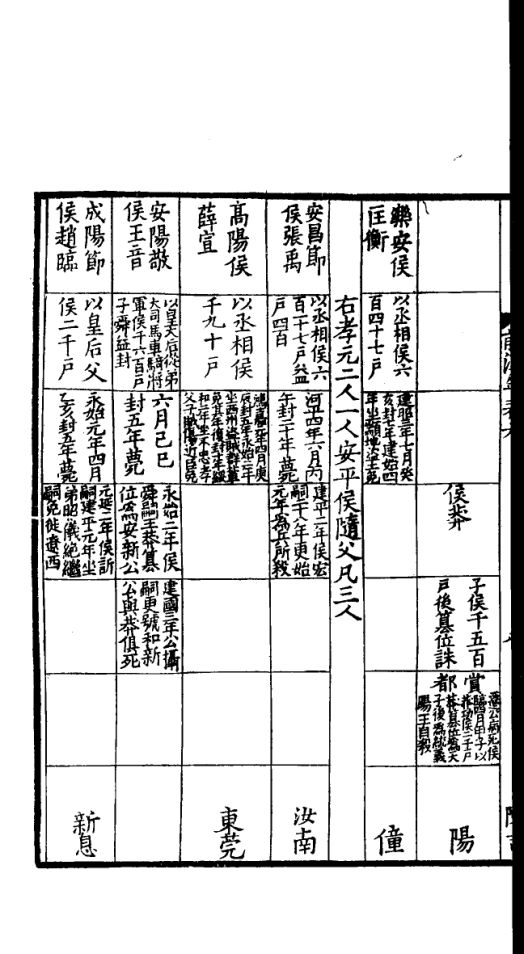 侯莽
子侯千五百
戶後篡位誅
賞都
臨四月甲子以
子後爲
陽王自殺
陽
樂安侯
匡衡
以丞相侯六
百四十七戶
建昭三年七月癸
亥封七年建始四
年坐顓地盜土免
僮
右孝元二人一人安平侯隨父凡三人
安昌節
侯張禹
以丞相侯六
百一十七戶益
戶四百
河平四年六月丙
午封二十年薨
建平二年侯宏
嗣二十八年更始
元年爲兵所殺
汝南
高陽侯
薛宣
以丞相侯
千九十戶
鴻嘉元年四月庚
辰封五年永始二年
坐西州盜賊群輩
免其年復封十年綏
和二年坐不忠孝
父子賊傷近臣免
東莞
安陽敬
侯王音
以皇太后從弟
大司馬車騎將
軍侯千六百戶
子舜益封
六月己巳
封五年薨
永始二年侯
舜嗣王莽篡
位爲安新公
建國三年公攝
嗣更號和新
公與莽俱死
成陽節
侯趙臨
以皇后父
侯二千戶
永始元年四月
乙亥封五年薨
元延二年侯訢
嗣建平元年坐
弟昭儀絕繼
嗣免徙遼西
新息